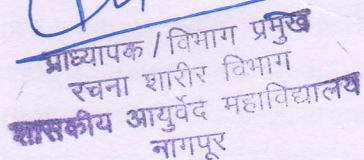 प्राध्यापक / विभाग प्रमुख
रचना शारीर विभाग
शासकीय आयुर्वेद महाविद्यालय
नागपूर